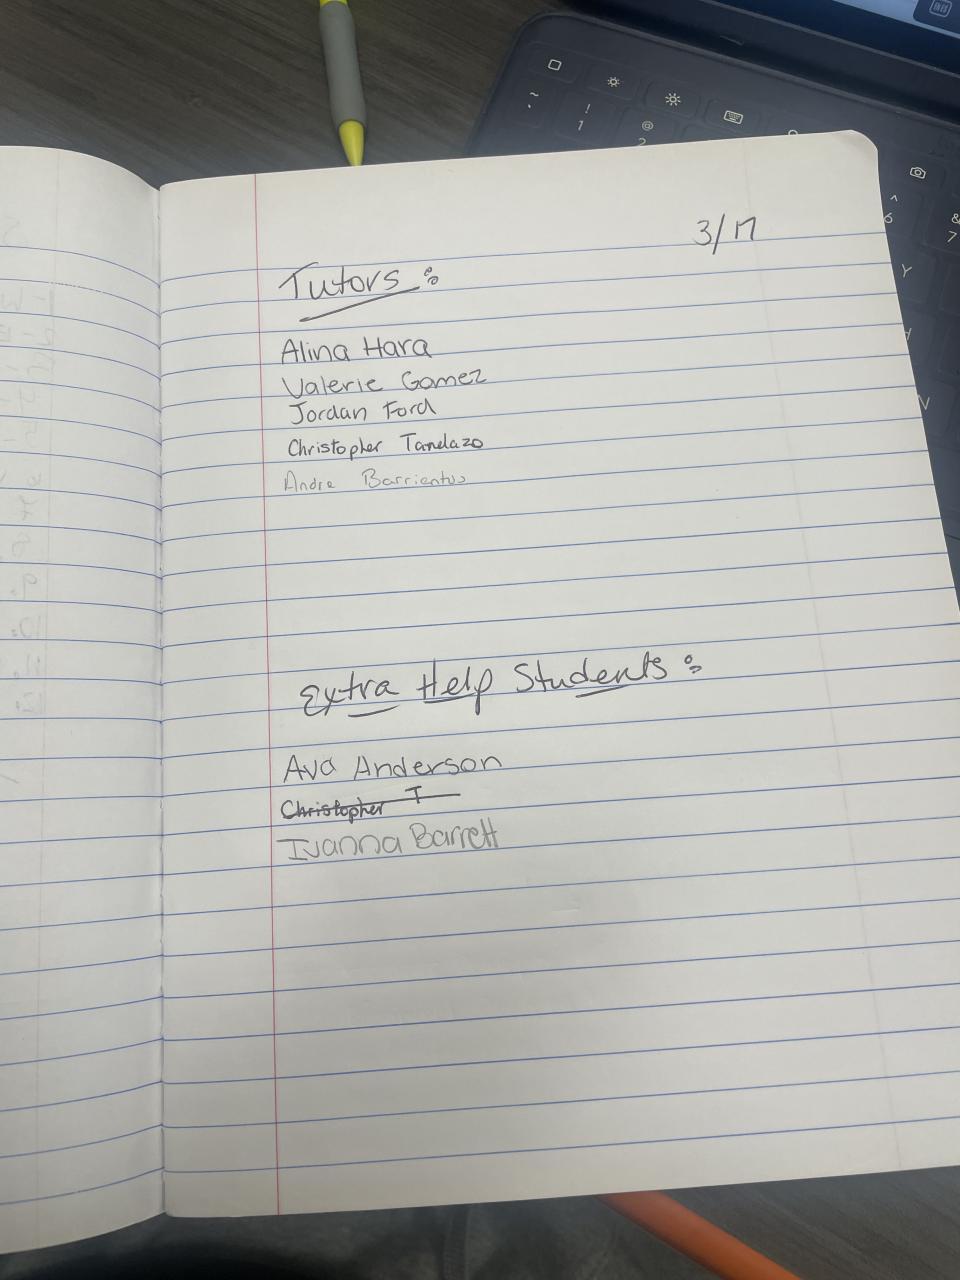 3/17
Tutors:
Alina Hara
Valerie Gomez
Jordan Ford
Christopher Tandazo
Andre Barrientos
Extra Help Students:
Ava Anderson
Christopher T
Ivanna Barrett